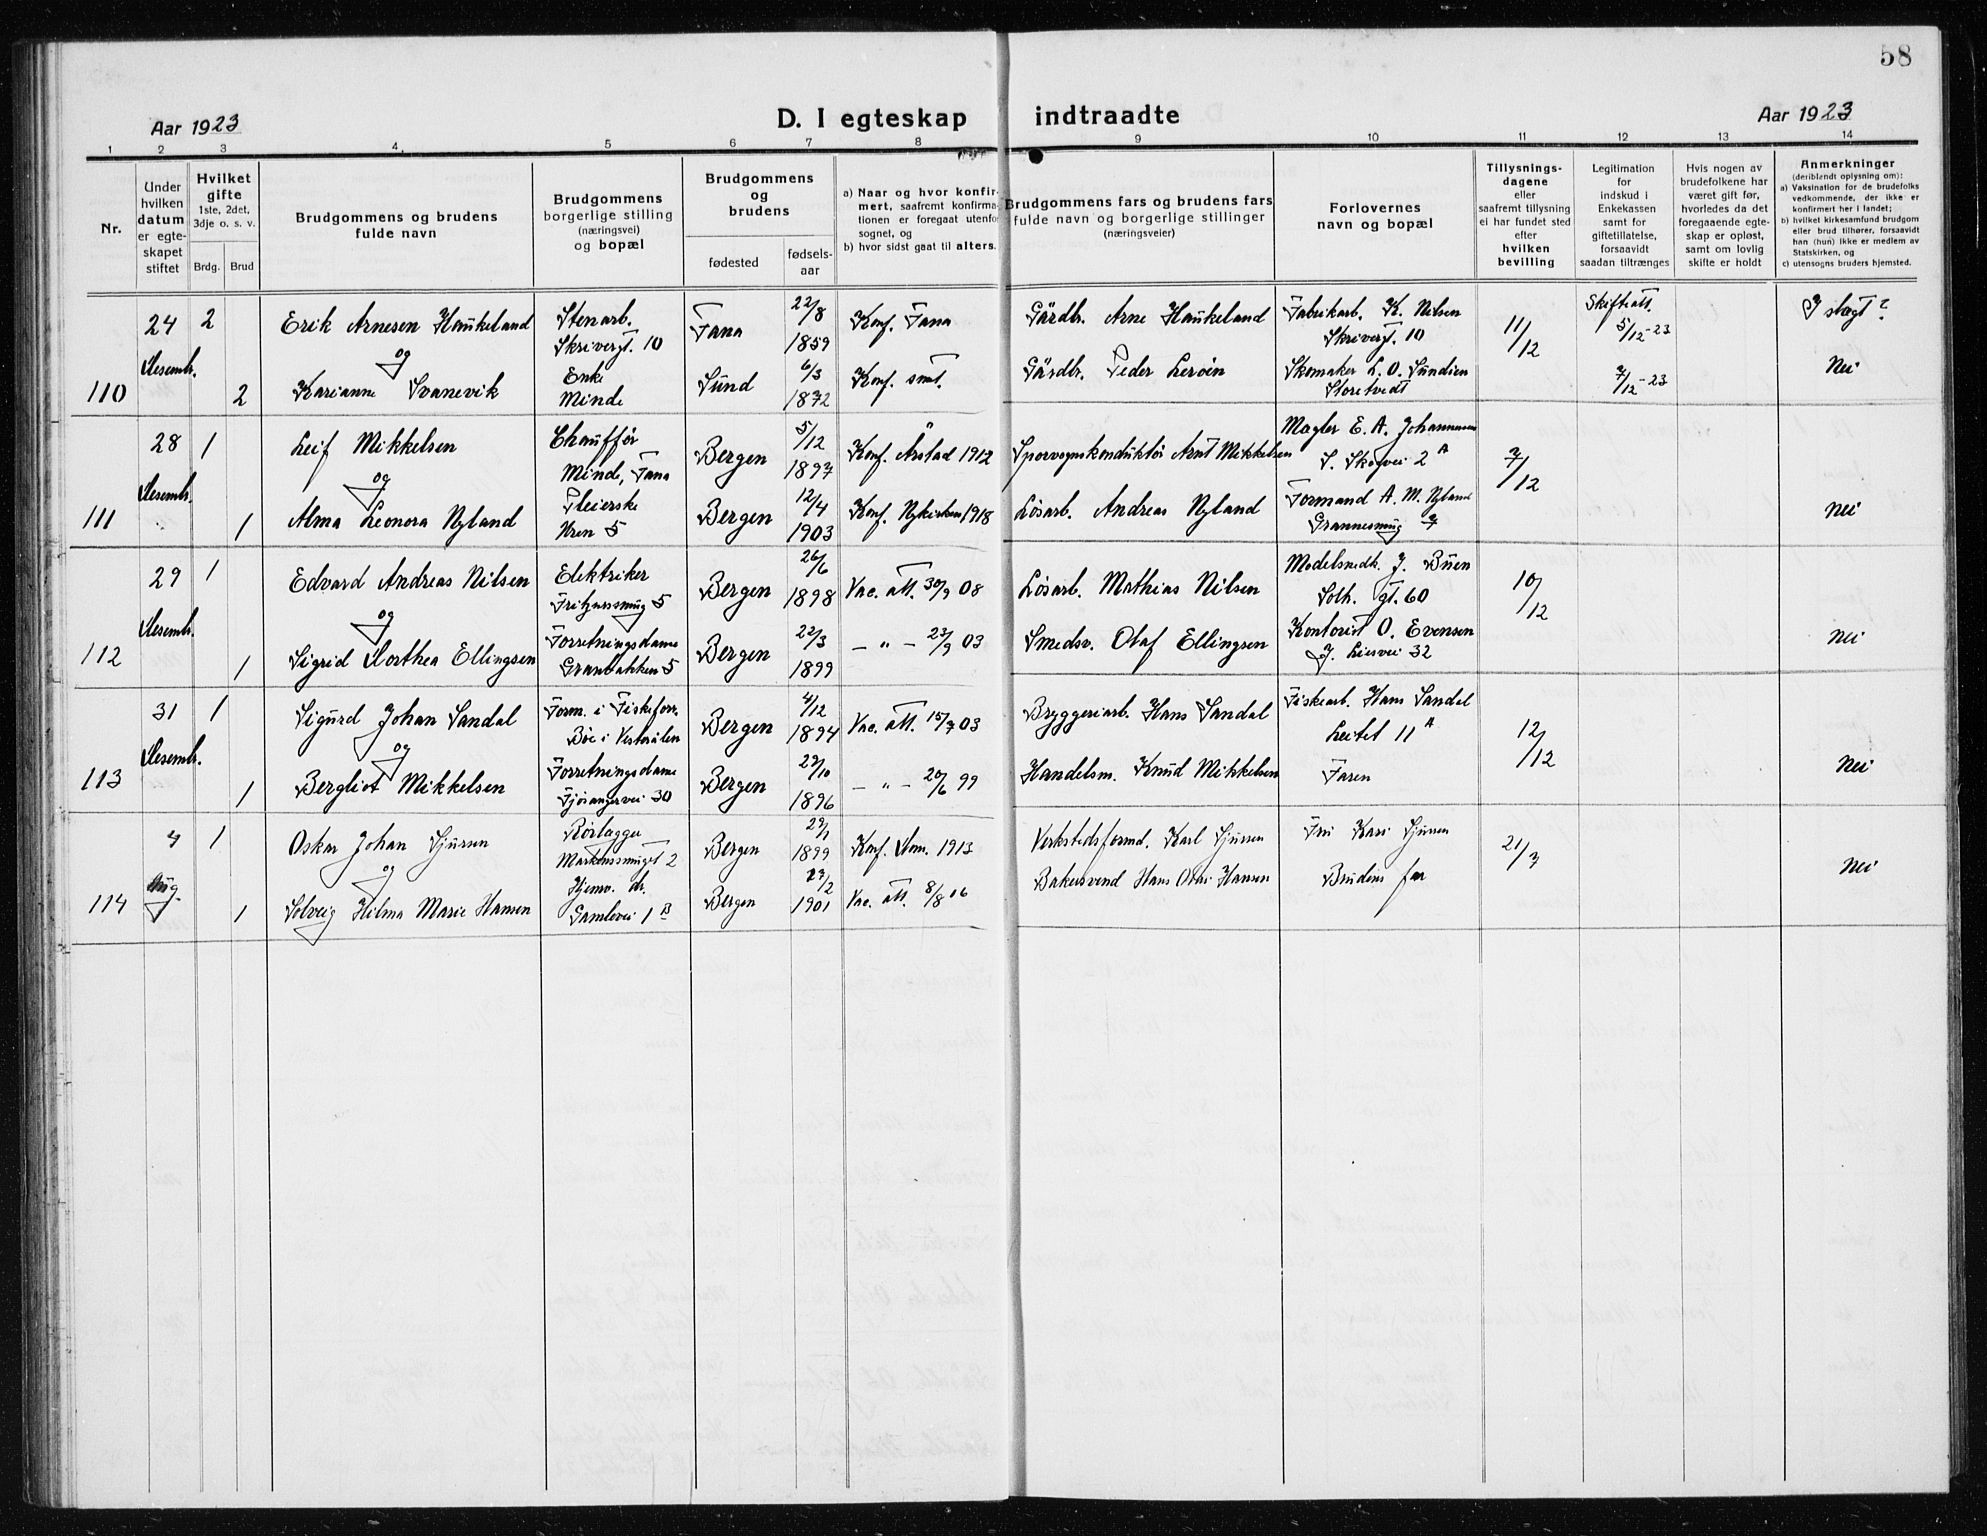 58
Aar 1923
D. I egteskap indtraadte
Aar 1923
1 2 3 4 5 6 7 8 9 10 11 12 13 14
Nr.
Under hvilken datum er egteskapet stiftet
Hvilket gifte
1ste, 2det, 3dje o. s. v.
Brdg. Brud
Brudgommens og brudens fulde navn
Brudgommens borgerlige stilling (næringsvei) og bopæl
Brudgommens og brudens
fødested
fødsels-aar
a) Naar og hvor konfirmert, saafremt konfirmationen er foregaat utenfor sognet, og
b) hvor sidst gaat til alters.
Brudgommens fars og brudens fars fulde navn og borgerlige stillinger (næringsveier)
Forlovernes navn og bopæl
Tillysningsdagene eller saafremt tillysning ei har fundet sted efter hvilken bevilling
Legitimation for indskud i Enkekassen samt for giftetillatelse, forsaavidt saadan tiltrænges
Hvis nogen av brudefolkene har været gift før, hvorledes da det foregaaende egteskap er opløst, samt om lovlig skifte er holdt
Anmerkninger (deriblandt oplysning om):
a) Vaksination for de brudefolks vedkommende, der ikke er konfirmert her i landet;
b) hvilket kirkesamfund brudgom eller brud tilhører, forsaavidt han (hun) ikke er medlem av Statskirken, og
c) utensogns bruders hjemsted.
110 24 Desembr. 2
Erik Arnesen Haukeland
Stenarb. Skrivergt. 10
Fana 22/8 1859
Konf. Fana
Gårdbr. Arne Haukeland
Fabrikarb. K. Nilsen Skrivergt. 10
11/12
Skifteatt. 5/12-23
I slægt?
og
2 Karianne Svanevik
Enke Minde
Sund 6/3 1872
Konf. smt.
Gårdbr. Peder Lerøen
Skomaker L. O. Sundien Storetvedt
7/12-23
Nei
111 28 Desembr. 1
Leif Mikkelsen
Chauffør Minde, Fana
Bergen 5/12 1897
Konf. Årstad 1912
Sporvognskonduktør Arnt Mikkelsen
Mægler E. A. Johannesen S. Skogvei 2 A
7/12
og
1 Alma Leonora Nyland
Pleierske Kren 5
Bergen 12/4 1903
Konf. Nykirken 1918
Løsarb. Andreas Nyland
Formand A. M. Nyland Grannesmug 7
Nei
112 29 Desembr. 1
Edvard Andreas Nilsen
Elektriker Fritznersmug 5
Bergen 26/6 1898
Vac. att. 30/9 08
Løsarb. Mathias Nilsen
Modelsnedk. J. Buen Solh. gt. 60
10/12
og
1 Sigrid Dorthea Ellingsen
Forretningsdame Granbakken 5
Bergen 22/3 1899
— " — 23/9 03
Smedsv. Olaf Ellingsen
Kontorist O. Evensen J. Liesvei 32
Nei
113 31 Desembr. 1
Sigurd Johan Sandal
Form. i Fiskeforr. Bøe i Vesterålen
Bergen 4/12 1894
Vac. att. 15/7 03
Bryggeriarb. Hans Sandal
Fiskearb. Hans Sandal Leitet 11 A
12/12
og
1 Bergliot Mikkelsen
Forretningsdame Fjøsangervei 30
Bergen 27/10 1896
— " — 20/6 99
Handelsm. Knud Mikkelsen
Faren
Nei
114 4 Aug. 1
Oskar Johan Sjursen
Rørlægger Markenssmuget 2
Bergen 29/1 1899
Konf. Dom. 1913
Verkstedsformd. Karl Sjursen
Fru Kari Sjursen
21/7
og
1 Solveig Hilma Marie Hansen
Hjemv. dr. Gamlevei 1 B
Bergen 27/2 1901
Vac. att. 8/8 06
Bakersvend Hans Olai Hansen
Brudens far
Nei